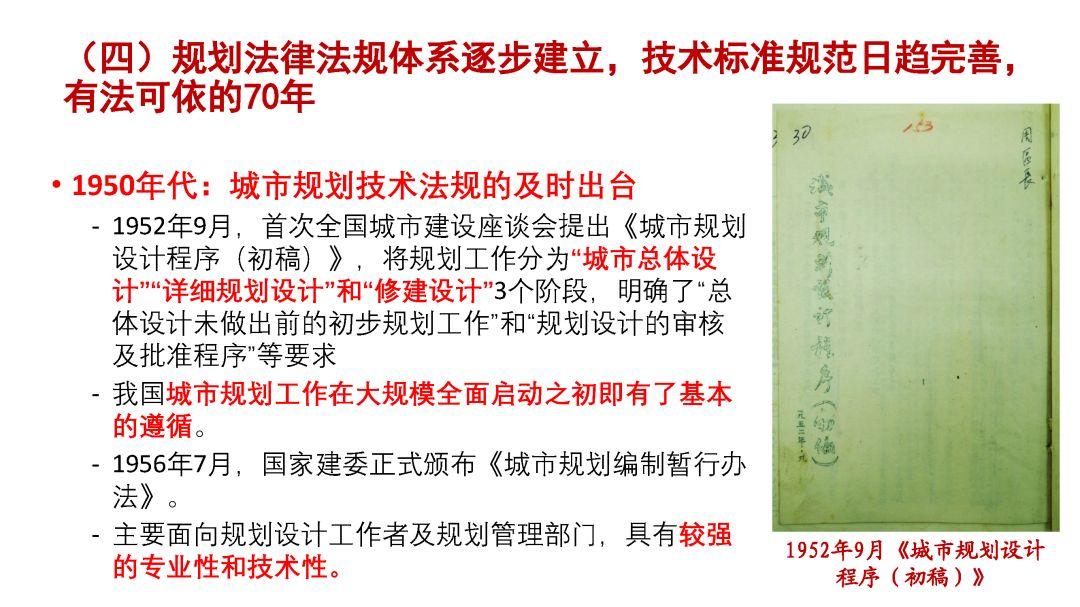 （四）规划法律法规体系逐步建立，技术标准规范日趋完善，
有法可依的70年
• 1950年代：城市规划技术法规的及时出台
- 1952年9月，首次全国城市建设座谈会提出《城市规划
设计程序（初稿）》，将规划工作分为“城市总体设
计”“详细规划设计”和“修建设计”3个阶段，明确了“总
体设计未做出前的初步规划工作”和“规划设计的审核
及批准程序”等要求
- 我国城市规划工作在大规模全面启动之初即有了基本
的遵循。
- 1956年7月，国家建委正式颁布《城市规划编制暂行办
法》。
- 主要面向规划设计工作者及规划管理部门，具有较强
的专业性和技术性。
30
153
周区長
城市规划设计程序(初稿)
一九五二年·九
1952年9月《城市规划设计
程序（初稿）》